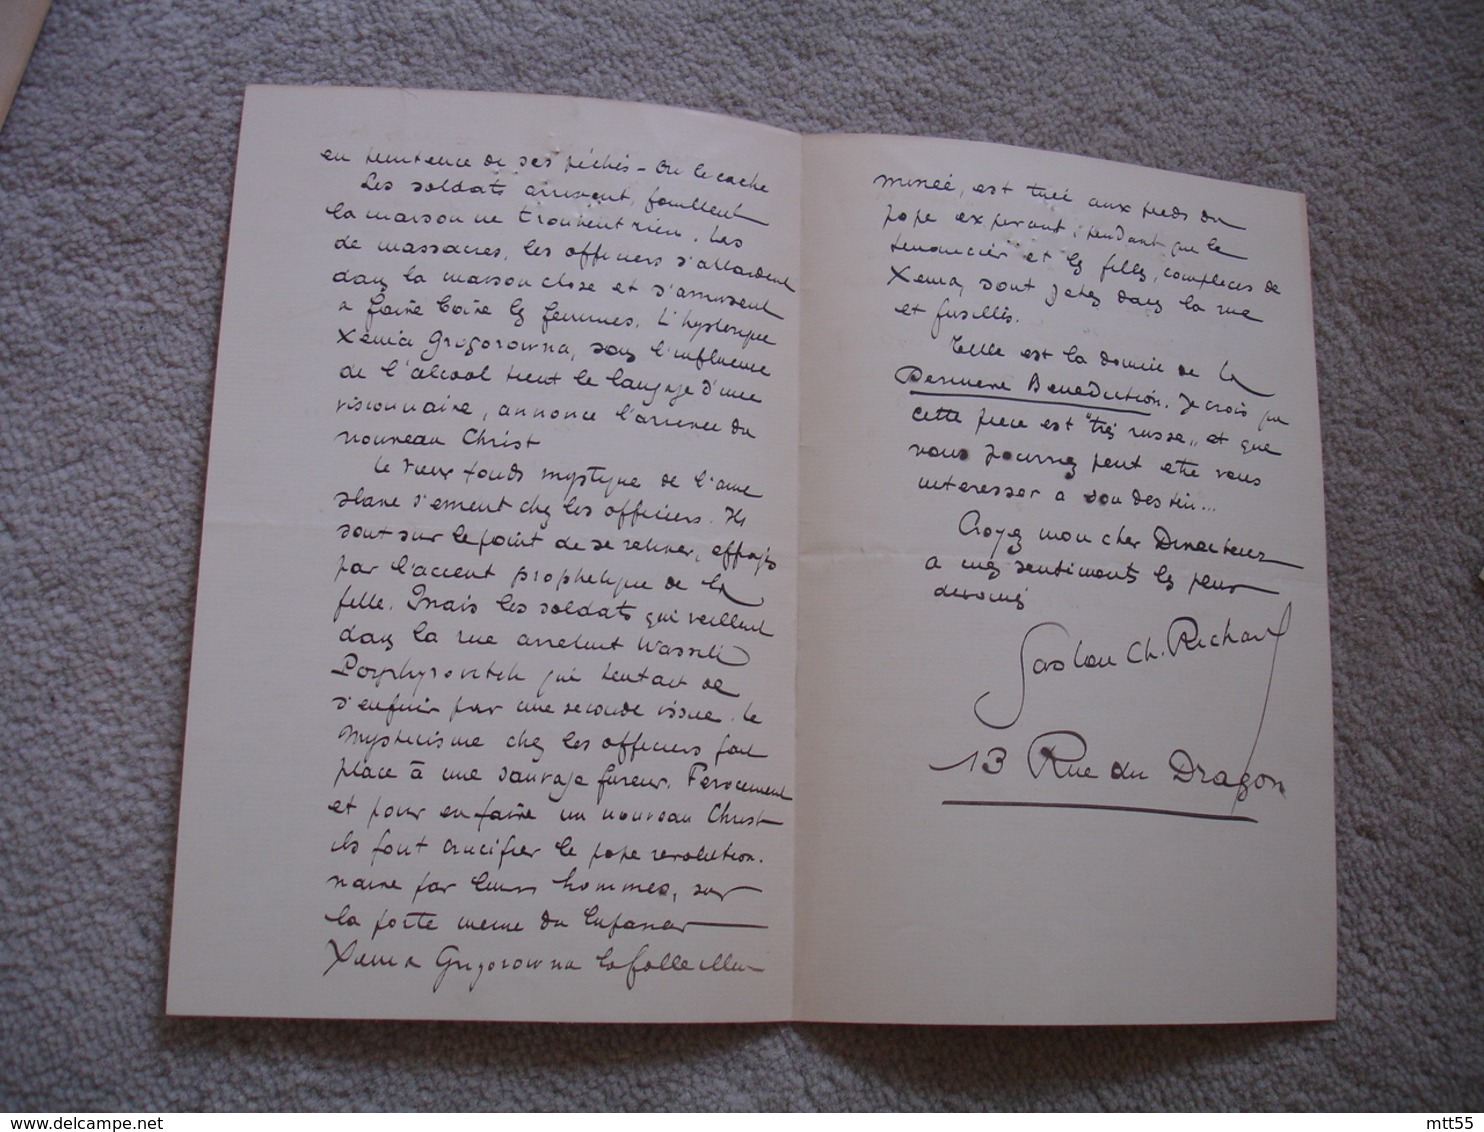 en penitence de ses péchés – On le cache
Les soldats arrivent, fouillent
la maison ne trouvent rien. Las
de massacres, les officiers s'attardent
dans la maison close et s'amusent
a faire boire les femmes. L'hysterique
Xenia Grigorowna, sous l'influence
de l'alcool tient le langage d'une
visionnaire, annonce l'arrivee du
nouveau Christ
Le vieux fonds mystique de l'ame
slave s'emeut chez les officiers. Ils
sont sur le point de se retirer, effrayés
par l'accent prophetique de la
fille. Mais les soldats qui veillent
dans la rue arretent Wassili
Porphyrovitch qui tentait de
s'enfuir par une seconde issue. Le
mysticisme chez les officiers fait
place à une sauvage fureur. Ferocement
et pour en faire un nouveau Christ
ils font crucifier le pope revolution.
naire par leurs hommes, sur
la porte meme du lupanar
Xenia Grigorowna la folle illu-
minée, est tuée aux pieds du
pope expirant, pendant que le
tenancier et les filles, complices de
Xenia, sont jetés dans la rue
et fusillés.
Telle est la donnée de la
Derniere Benediction. Je crois que
cette piece est "très russe" et que
vous pourrez peut etre vous
interesser a son destin...
Croyez mon cher Directeur
a mes sentiments les plus
devoués
Gaston Ch. Richard
13 Rue du Dragon
delcampe.net
mtt55